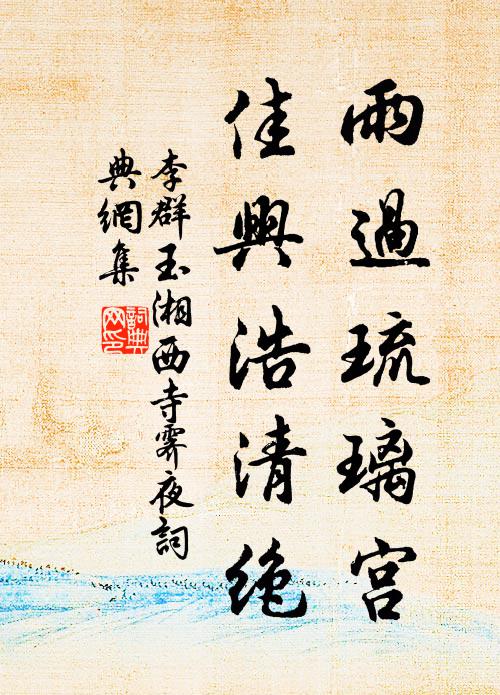 雨過琉璃宮
佳興浩清絶
李群玉湘西寺霽夜詞
典網集
詞典
网印